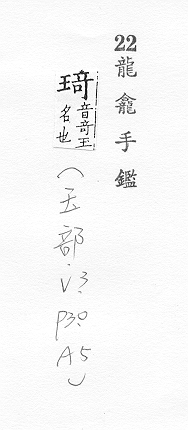 22 龍龕手鑑
琦 音奇玉名也
(玉部.V3.P30.A5)